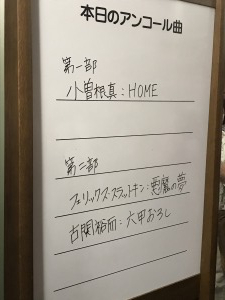 本日のアンコール曲
第一部
小曽根真：HOME
第二部
フェリックス・スラットキン：悪魔の夢
古関裕而：六甲おろし